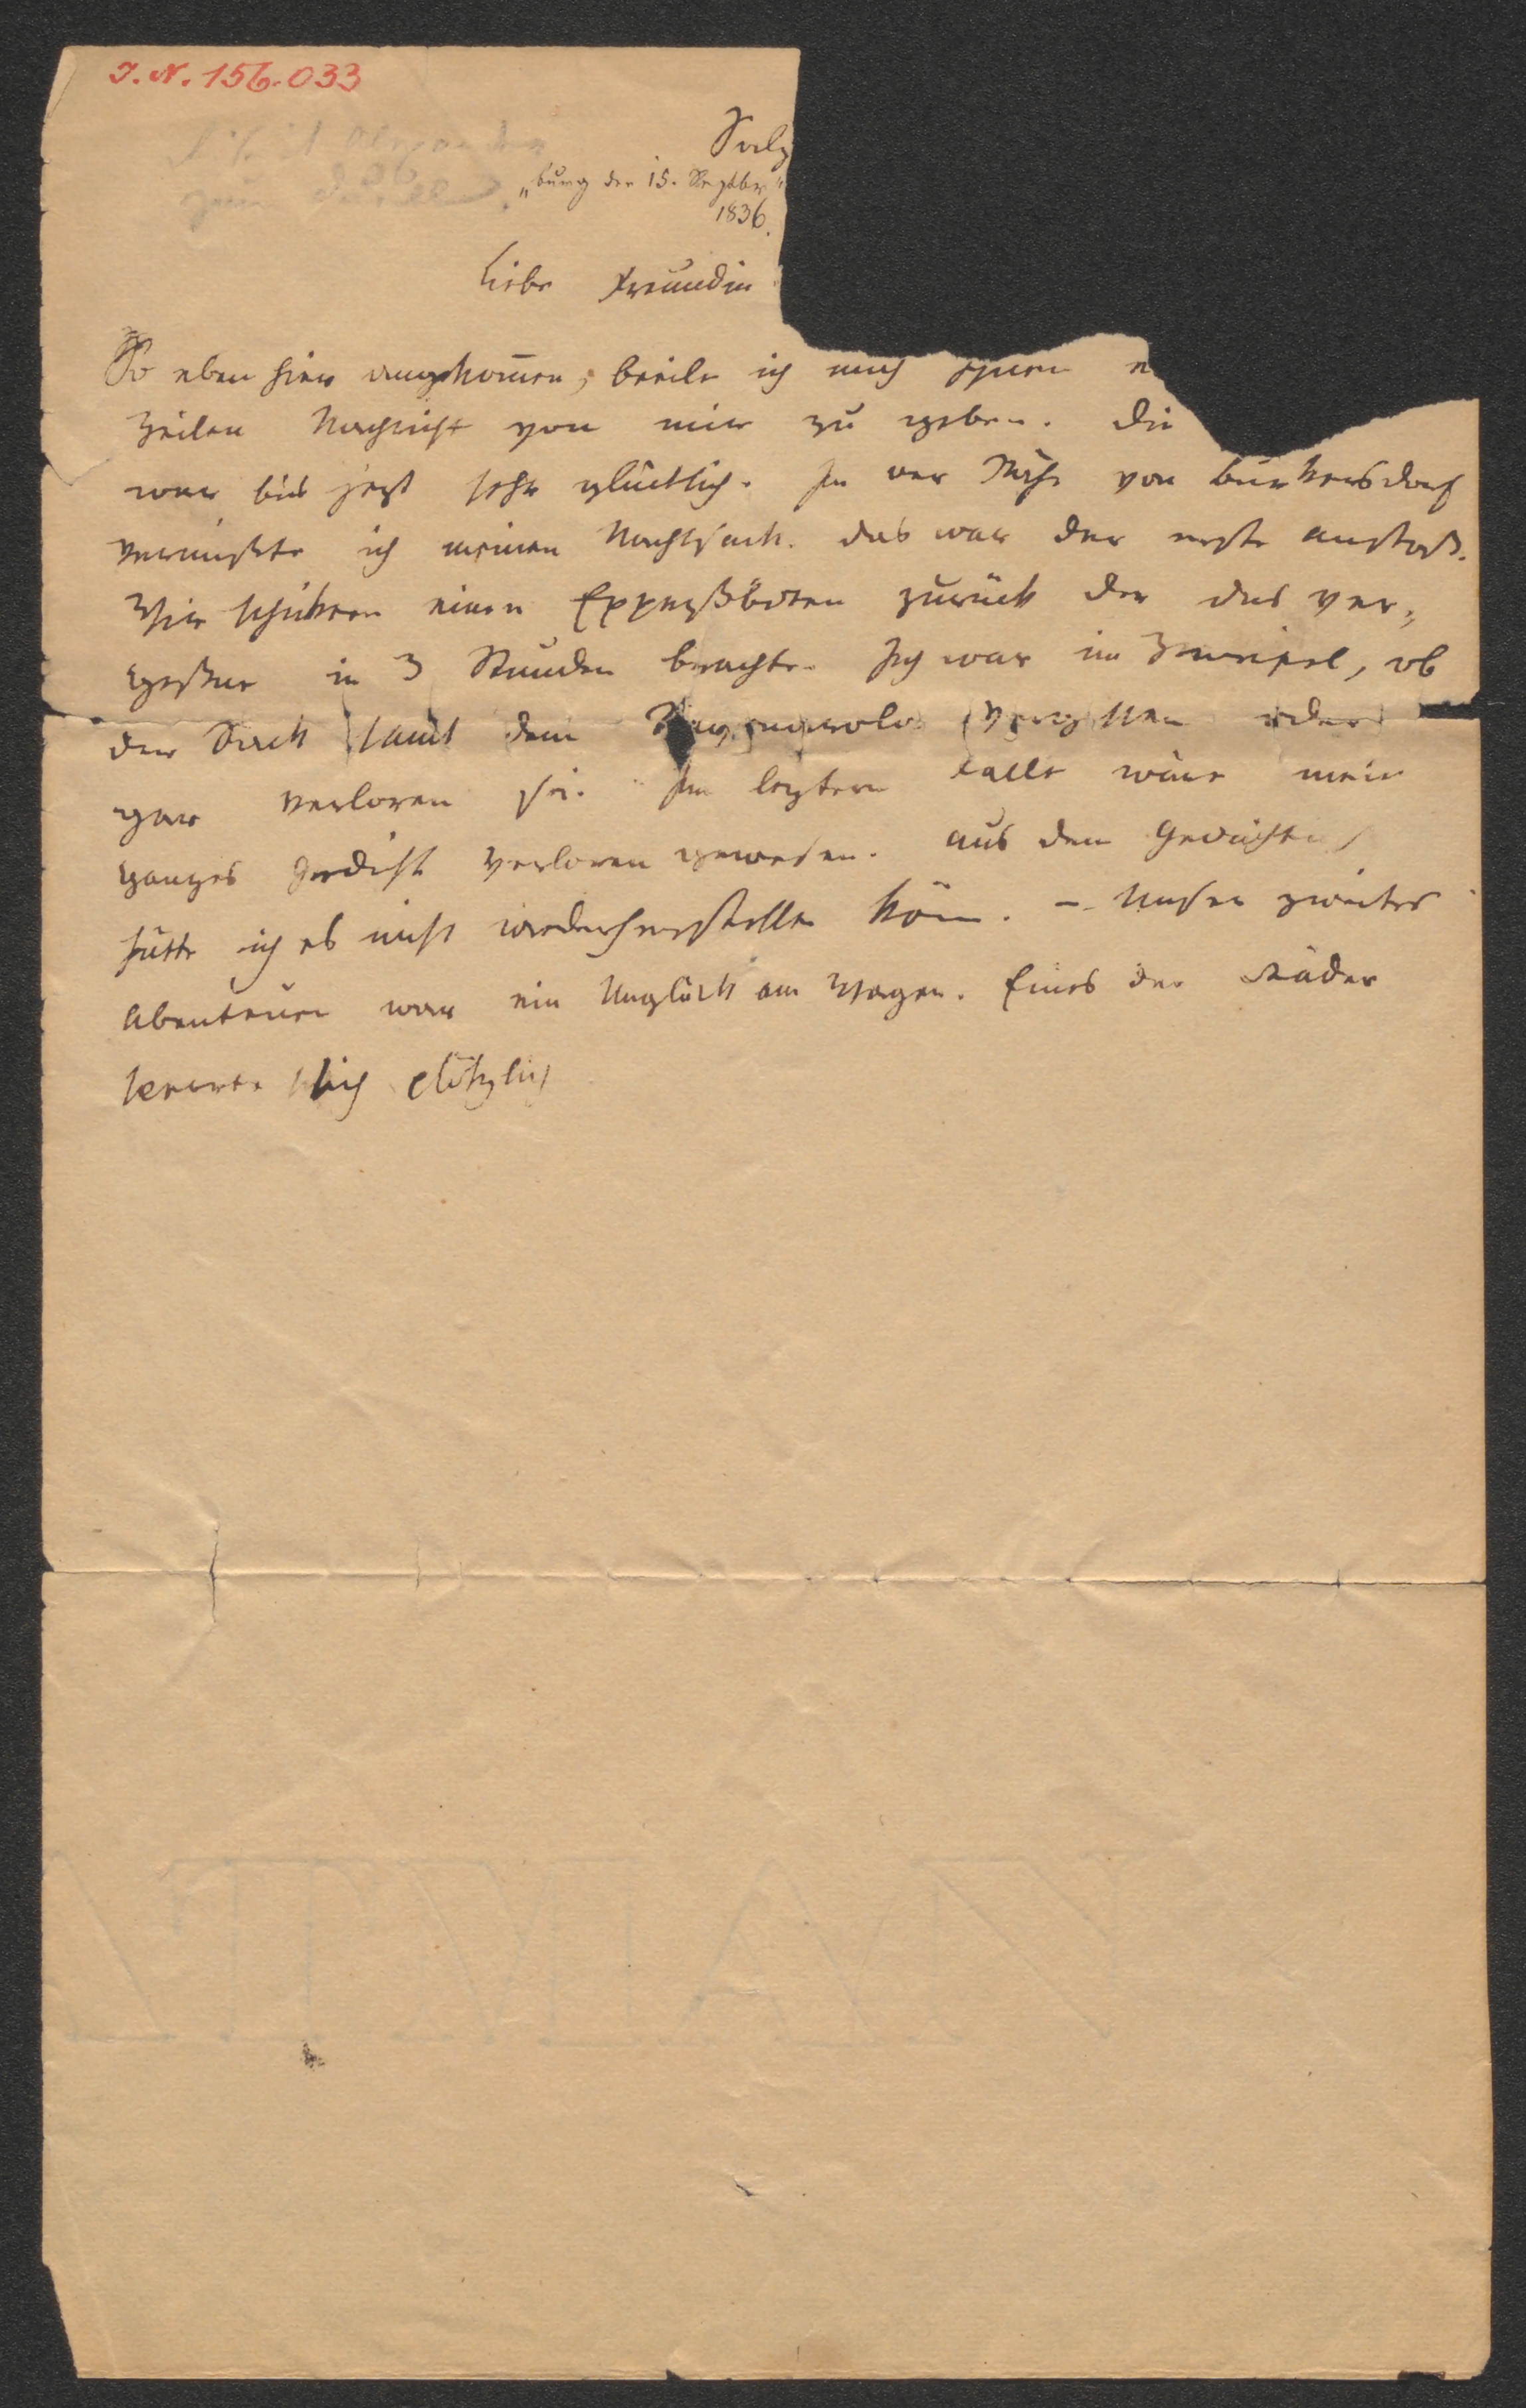 I. N. 156.033
Salz
„burg den 15. Septbr"
1836.
Liebe Freundin
So eben hier angekom̄en, beeile ich mich Ihnen e
Zeilen Nachricht von mir zu geben. Die
war bis jezt sehr glücklich. In der Nähe von Burkersdorf
vermißte ich meinen Nachtsack. Das war der erste Anstoß.
Wir schickten einen Expreßboten zurück der das ver„
geßne in 3 Stunden brachte. Ich war im Zweifel, ob
der Sack samt dem vergessen oder
gar verloren sei. Im leztern Falle wäre mein
ganzes Gedicht verloren gewesen. Aus dem Gedächtniß
hätte ich es nicht wiederherstellen kön̄en. – Unser zweites
Abenteuer war ein Unglück am Wagen. Eines der Räder
sich plötzlich